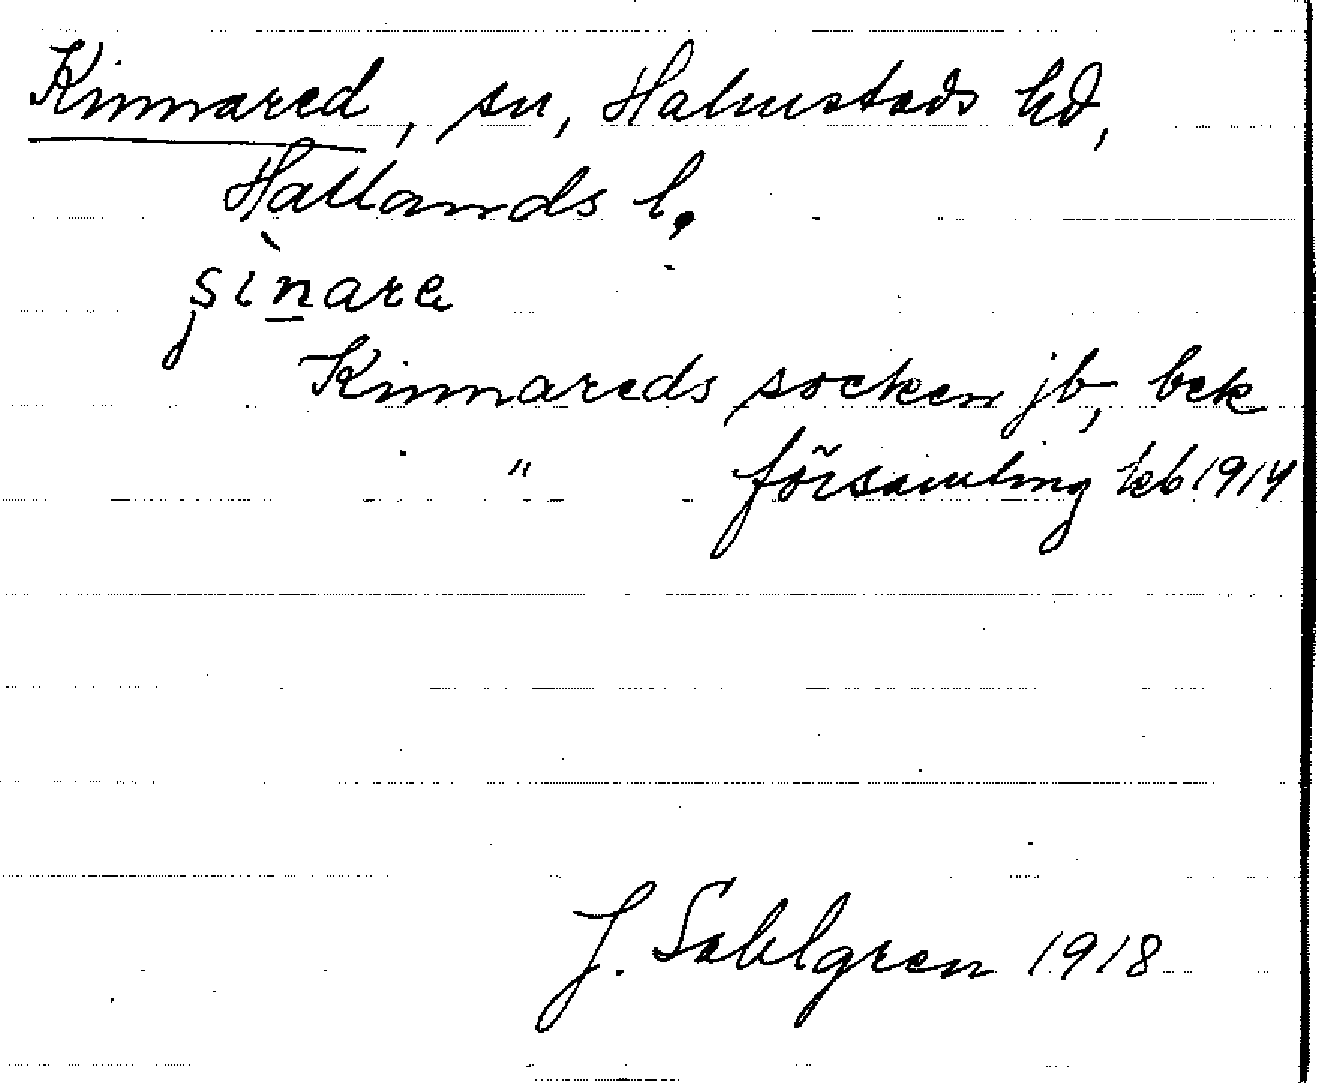 Kinnared, sn, Halmstads hd,
Hallands l.
şìnarə
Kinnareds socken jb, bek
" församling kb 1914
J. Sahlgren 1918